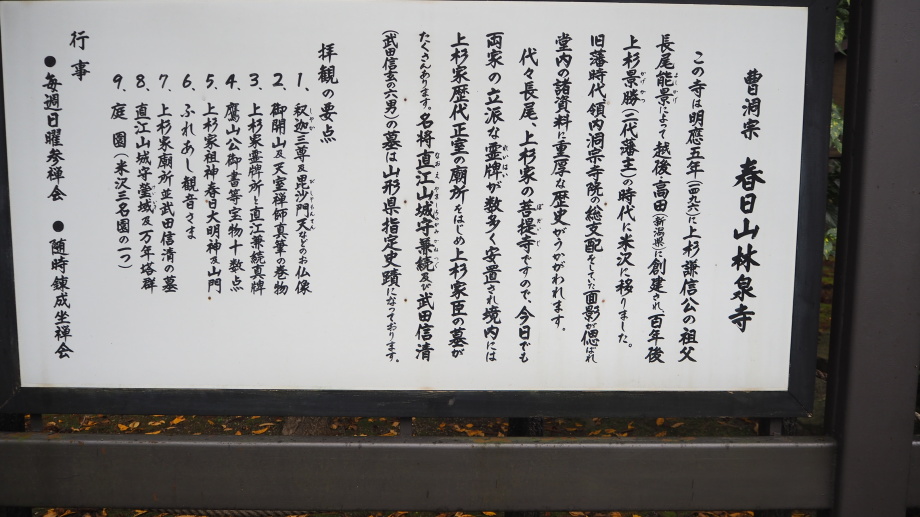 曹洞宗 春日山林泉寺
この寺は明應五年(一四九六)に上杉謙信公の祖父
長尾能景によって越後高田(新潟県)に創建され、百年後
上杉景勝(二代藩主)の時代に米沢に移りました。
旧藩時代領内洞宗寺院の総支配をしていた面影が偲ばれ
堂内の諸資料に重厚な歴史がうかがわれます。
代々長尾、上杉家の菩提寺ですので、今日でも
両家の立派な霊牌が数多く安置され境内には
上杉家歴代正室の廟所をはじめ上杉家臣の墓が
たくさんあります。名将直江山城守兼続及び武田信清
(武田信玄の六男)の墓は山形県指定史蹟になっております。
拝観の要点
1、釈迦三尊及毘沙門天などのお仏像
2、御開山及天室禅師真筆の巻物
3、上杉家霊牌所と直江兼続真牌
4、鷹山公御書等宝物十数点
5、上杉家祖神春日大明神及山門
6、ふれあし観音さま
7、上杉家廟所並武田信清の墓
8、直江山城守塋域及万年塔群
9、庭園(米沢三名園の一つ)
行事
●毎週日曜参禅会 ●随時錬成坐禅会